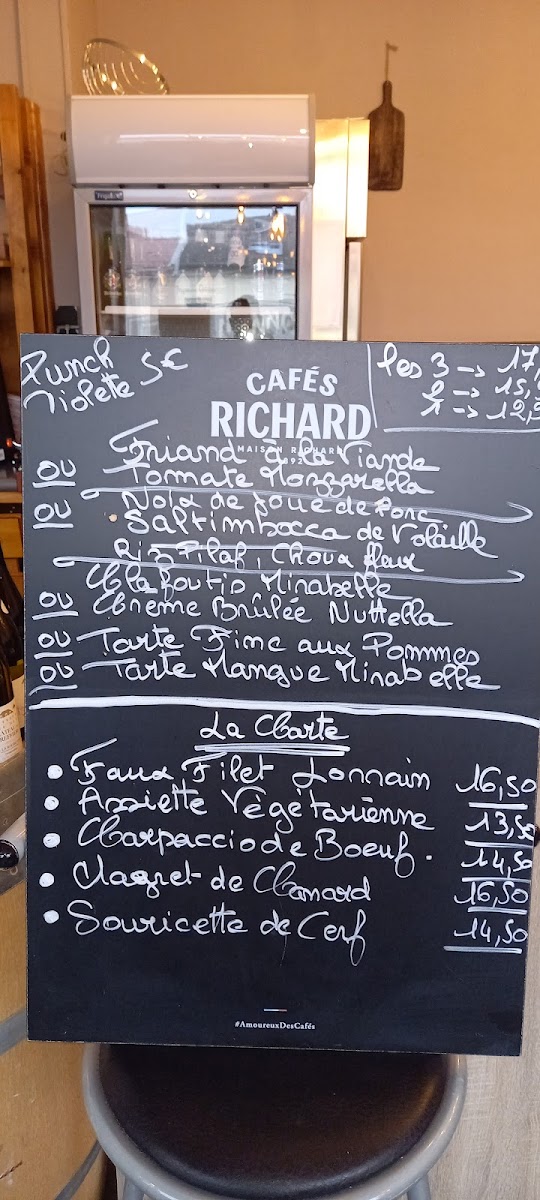 Punch
Violette 5€
les 3 → 17,
2 → 15,
1 → 12,5
CAFÉS
RICHARD
MAISON RICHARD
1892
Friand à la Viande
ou Tomate Mozzarella
Noix de Joue de Porc
ou Saltimbocca de Volaille
Riz Pilaf, Choux fleur
Clafoutis Mirabelle
ou Crème Brûlée Nuttella
ou Tarte Fine aux Pommes
ou Tarte Mangue Mirabelle
La Carte
• Faux Filet Lorrain 16,50
• Assiette Végétarienne 13,50
• Carpaccio de Boeuf. 14,50
• Magret de Canard 16,50
• Souricette de Cerf 14,50
#AmoureuxDesCafés